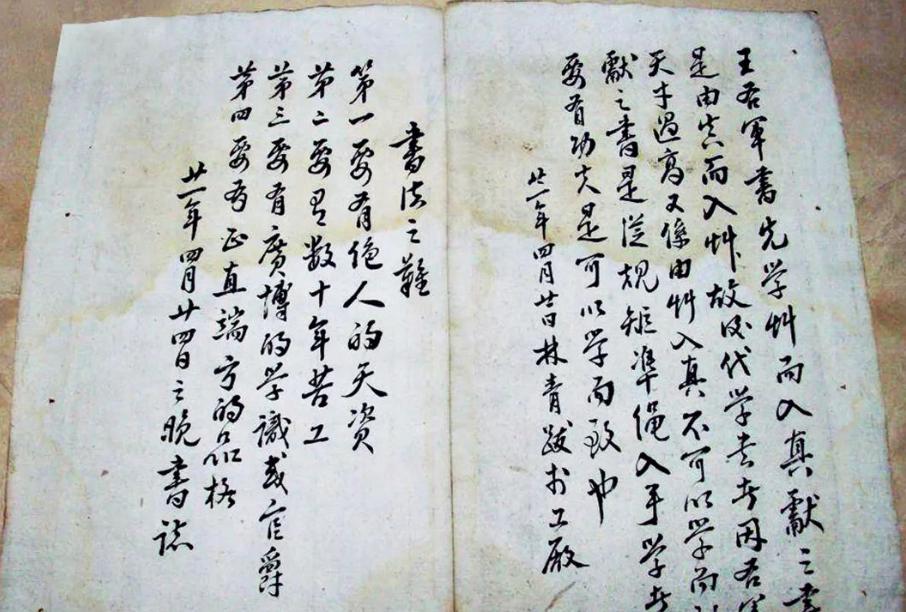 王右軍書先學艸而入真獻之書
是由真而入艸故後代學書者因右軍
天才過高又係由艸入真不可以學而
獻之書是從規矩準繩入手學者
要有功夫是可以學而致也
廿一年四月廿日林青跋於工廠
書法之難
第一要有絕人的天資
第二要有數十年苦工
第三要有廣博的學識或官爵
第四要有正直端方的品格
廿一年四月廿四日之晚書誌